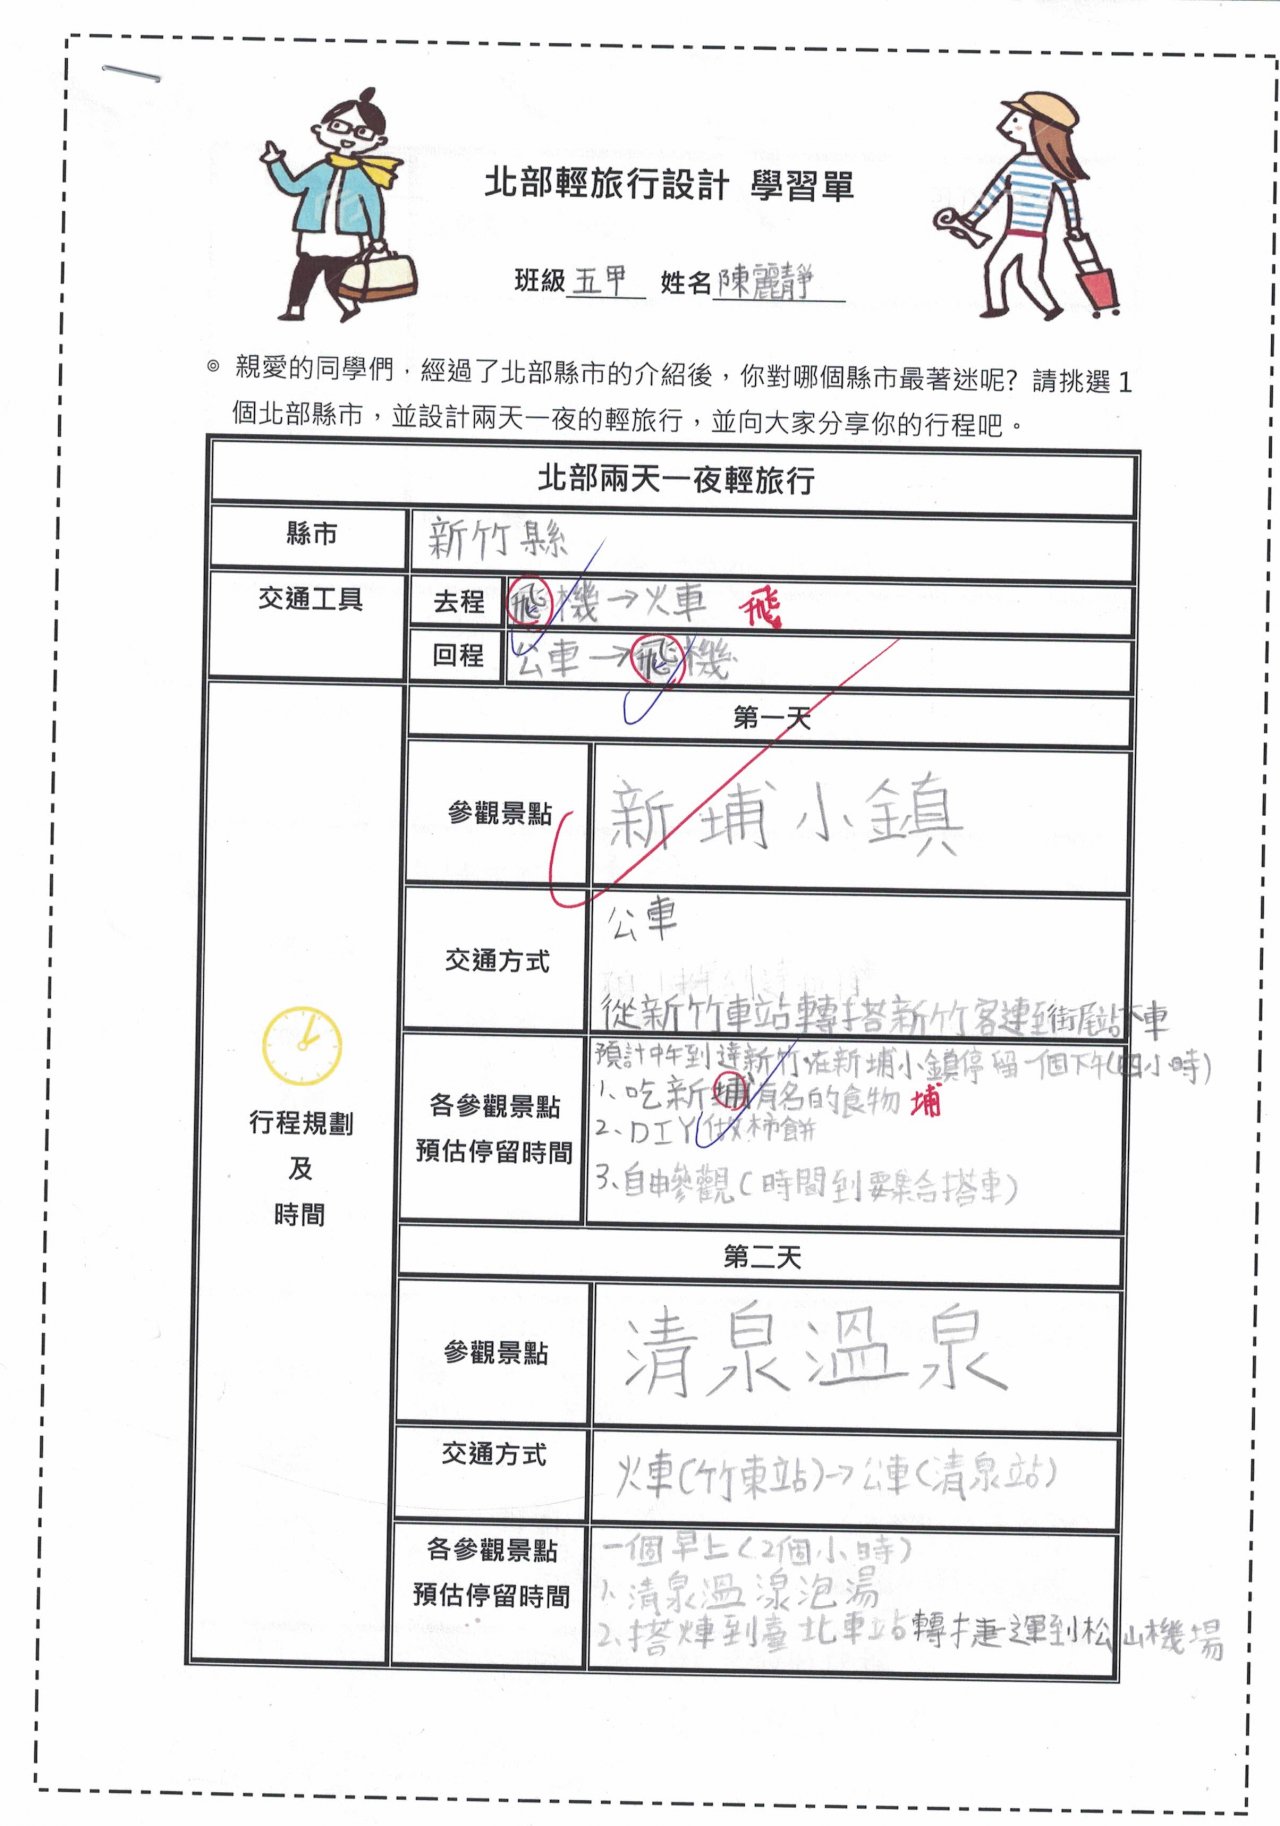 北部輕旅行設計 學習單
班級五甲 姓名陳麗靜
◎ 親愛的同學們，經過了北部縣市的介紹後，你對哪個縣市最著迷呢？請挑選1
個北部縣市，並設計兩天一夜的輕旅行，並向大家分享你的行程吧。
北部兩天一夜輕旅行
縣市
新竹縣
交通工具
去程
飛機→火車 飛
回程
公車→飛機
行程規劃
及
時間
第一天
參觀景點
新埔小鎮
交通方式
公車
從新竹車站轉搭新竹客運到街尾站下車
各參觀景點
預估停留時間
預計中午到達新竹,在新埔小鎮停留一個下午(四小時)
1、吃新埔有名的食物 埔
2、DIY做柿餅
3、自由參觀(時間到要集合搭車)
第二天
參觀景點
清泉溫泉
交通方式
火車(竹東站)→公車(清泉站)
各參觀景點
預估停留時間
一個早上(2個小時)
1、清泉溫湶泡湯
2、搭火車到臺北車站轉捷運到松山機場